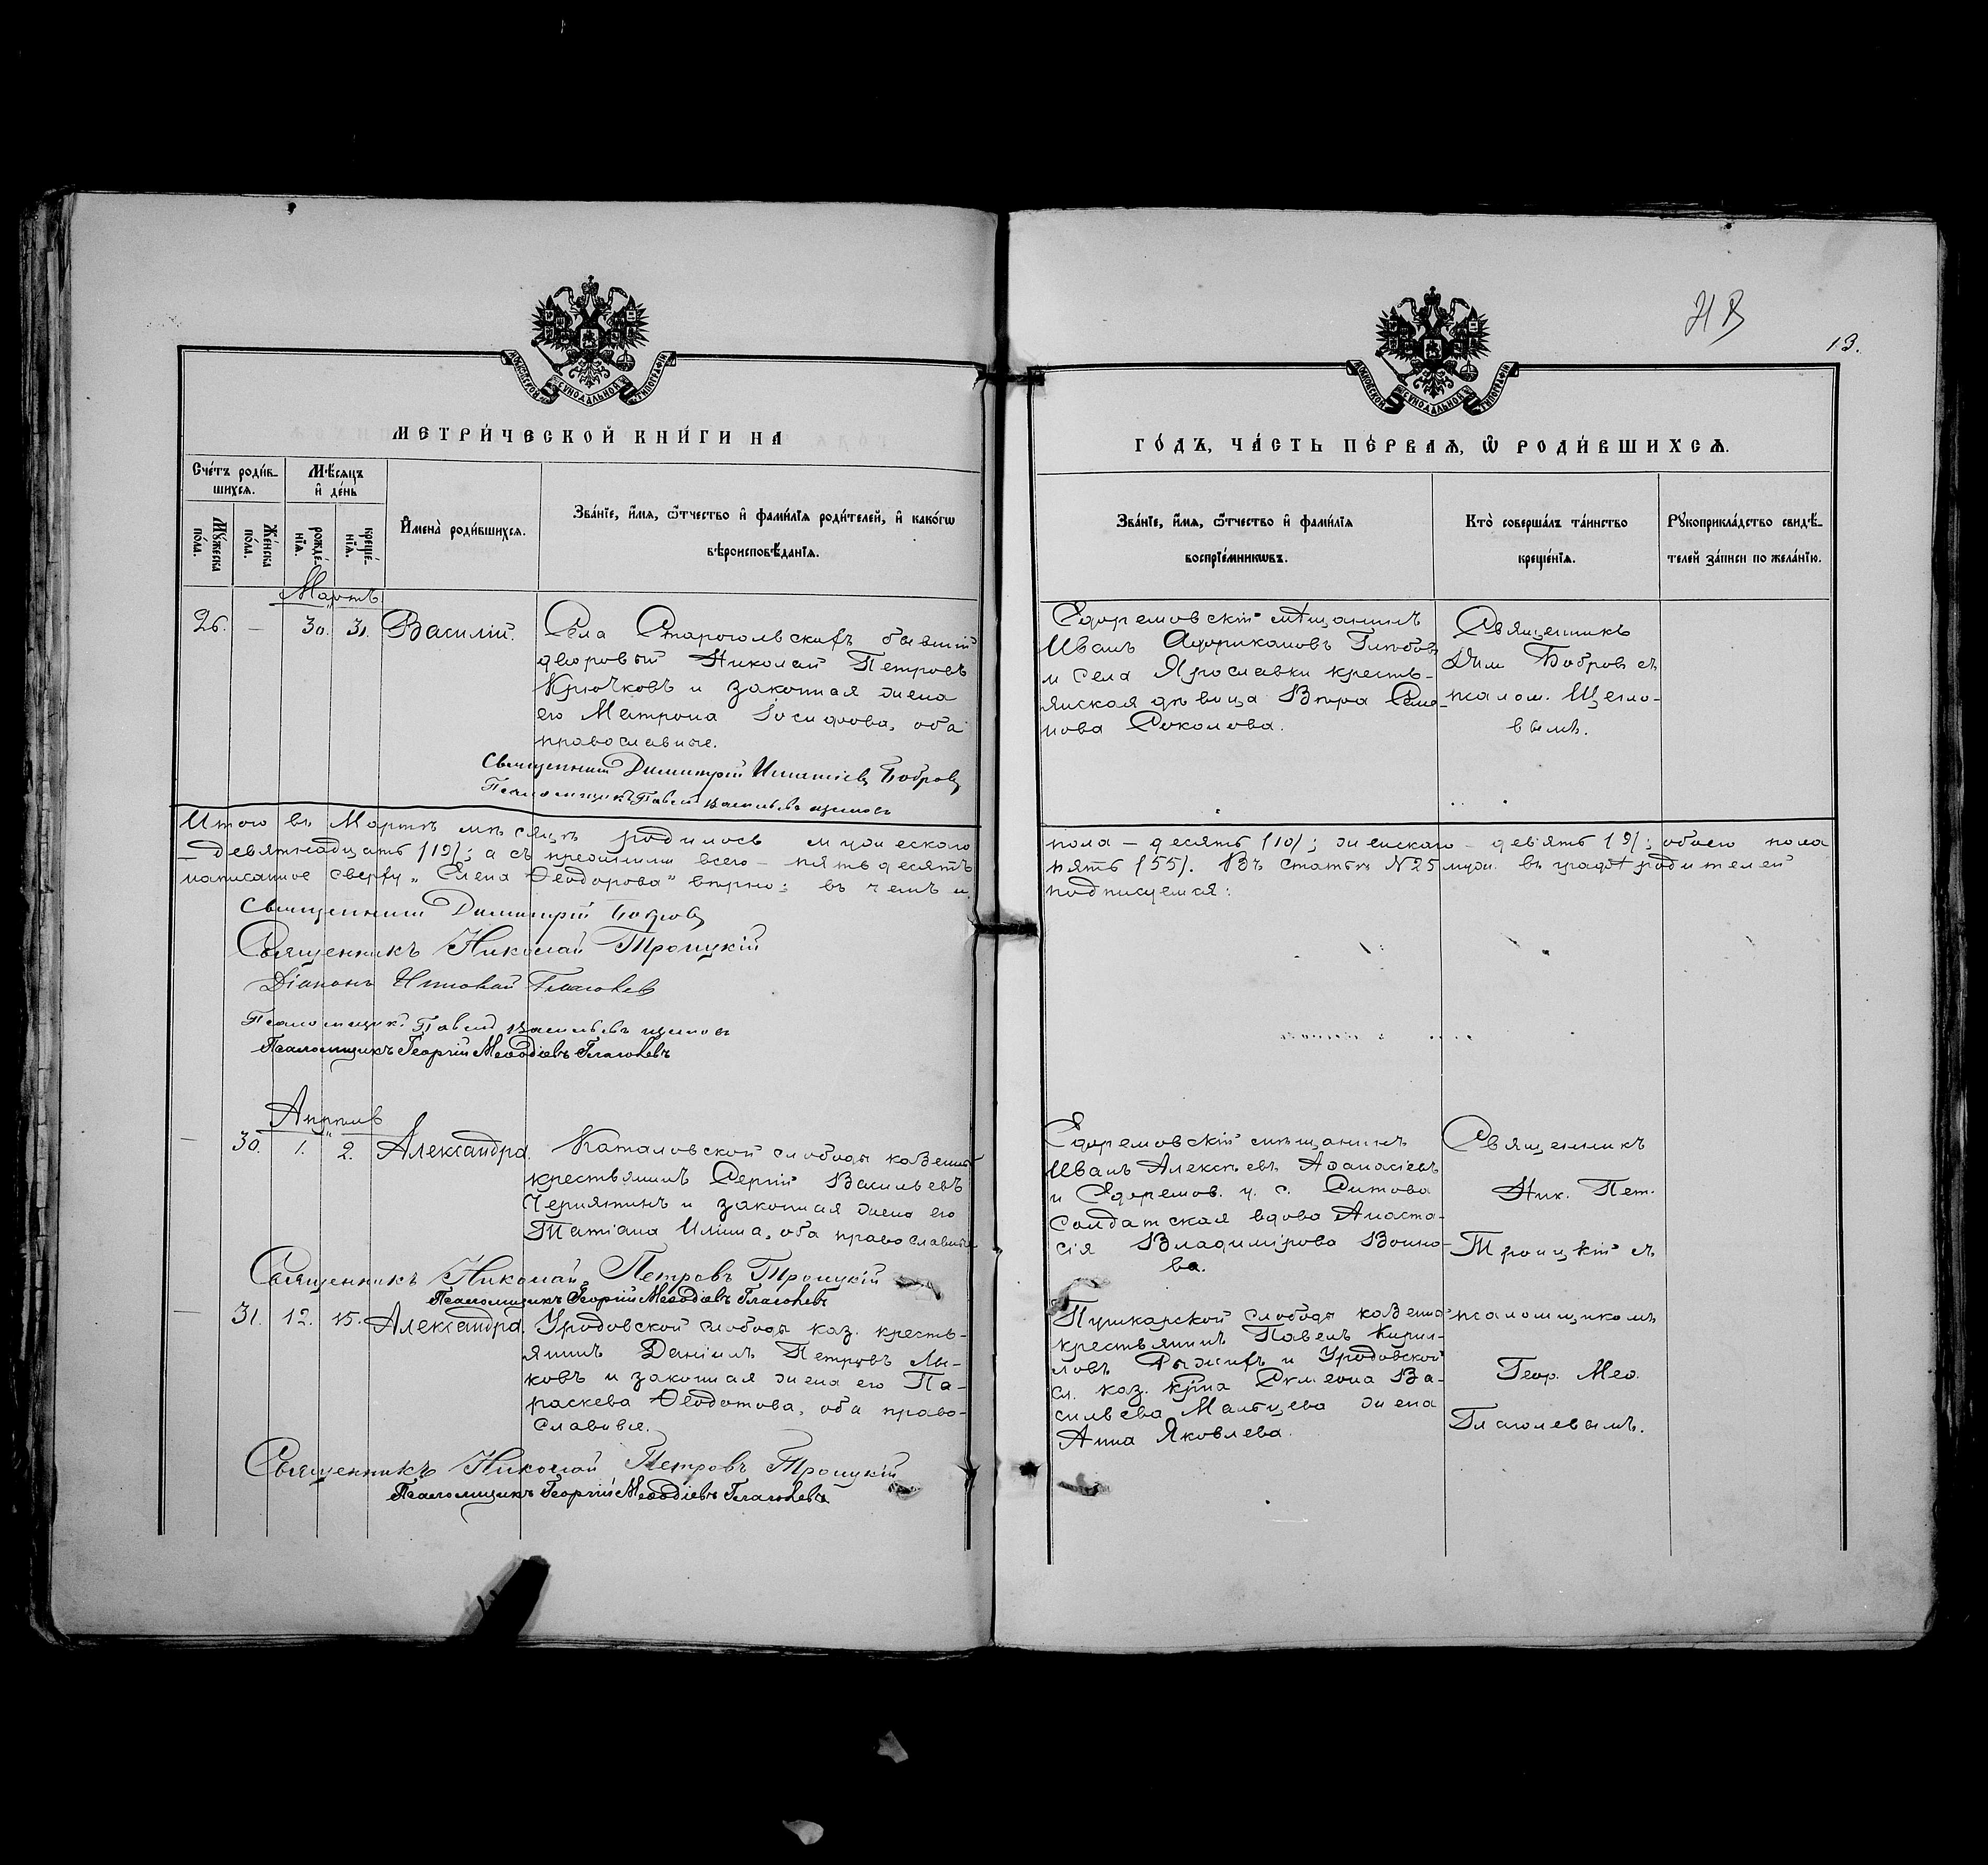 НВ
13.
МОСКОВСКОЙ СѴНОДАЛЬНОЙ ТИПОГРАФІИ
МЕТРИ́ЧЕСКОЙ КНИ́ГИ НА
Сче́тъ роди́в-
шихсѧ.
Мѣ́сѧцъ
и҆ де́нь
Мꙋ́жеска по́ла.
Же́нска по́ла.
рожде́-нїѧ.
креще́-нїѧ.
И҆мена̀ роди́вшихсѧ.
Зва́нїе, и҆́мѧ, ѻ҆́тчество и҆ фами́лїѧ роди́телей, и҆ како́гѡ
вѣроисповѣ́данїѧ.
Мартъ
26. — 30. 31. Василій.
Села Старогольскихъ бывшій
дворовый Николай Петровъ
Крючковъ и законная жена
его Матрона Іосифова, оба
православные.
Священникъ Димитрій Игнатіевъ Бобровъ
Псаломщикъ Павелъ Васильевъ Щегловъ
Итого въ Мартѣ мѣсяцѣ родилось мужескаго
— девятнадцать (19); а съ прежними всего — пятьдесятъ
написанное сверху „жена Ѳеодорова" вѣрно: въ чемъ и
Священникъ Димитрій Бобровъ
Священникъ Николай Троицкій
Діаконъ Глаголевъ
Псаломщикъ Павелъ Васильевъ Щегловъ
Псаломщикъ Георгій Меѳодіевъ Глаголевъ
Апрѣль
— 30. 1. 2. Александра.
Каталовской слободы казенный
крестьянинъ Сергій Васильевъ
Чернятинъ и законная жена его
Татіана Ильина, оба православные
Священникъ Николай Петровъ Троицкій
Псаломщикъ Георгій Меѳодіевъ Глаголевъ
— 31. 12. 15. Александра.
Уродовской слободы каз. кресть-
янинъ Даніилъ Петровъ Лы-
ковъ и законная жена его Па-
раскева Ѳеодотова, оба право-
славные.
Священникъ Николай Петровъ Троицкій
Псаломщикъ Георгій Меѳодіевъ Глаголевъ
МОСКОВСКОЙ СѴНОДАЛЬНОЙ ТИПОГРАФІИ
ГО́ДЪ, ЧА́СТЬ ПЕ́РВАѦ, Ѽ РОДИ́ВШИХСѦ.
Зва́нїе, и҆́мѧ, ѻ҆́тчество и҆ фами́лїѧ
воспрїе́мникѡвъ.
Кто̀ соверша́лъ та́инство
креще́нїѧ.
Рꙋкоприкла́дство свидѣ́-
телей за́писи по жела́нїю.
Ефремовскій мѣщанинъ
Иванъ Африкановъ Глѣбовъ
и села Ярославки кресть-
янская дѣвица Вѣра Семе-
нова Соколова.
Священникъ
Дим. Бобровъ съ
псалом. Щегло-
вымъ.
пола — десять (10); женскаго — девять (9); обоего пола
пять (55). Въ статьѣ №25 муж. въ графѣ родителей
подписуемся:
Ефремовскій мѣщанинъ
Иванъ Алексѣевъ Аѳанасіевъ
и Ефремов. у. с. Ситова
солдатская вдова Анаста-
сія Владимірова Воино-
ва.
Священникъ
Ник. Пет.
Троицкій съ
Пушкарской слободы казенный
крестьянинъ Павелъ Кирил-
ловъ Рыжихъ и Уродовской
сл. каз. крна Симеона Ва-
сильева Мальцева жена
Анна Яковлева.
псаломщикомъ
Геор. Меѳ.
Глаголевымъ.